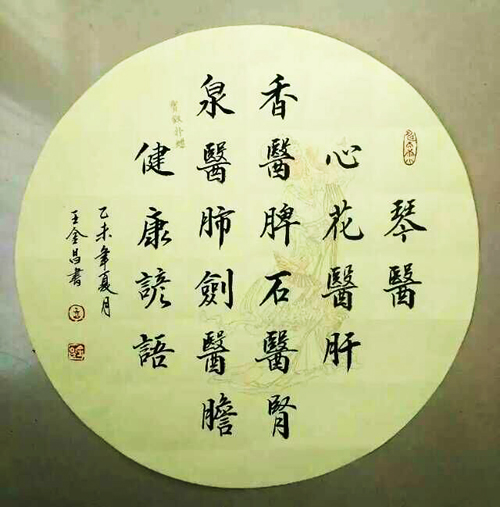 琴醫
心花醫肝
香醫脾石醫腎
泉醫肺劍醫膽
健康諺語
乙未年夏月
王金昌書